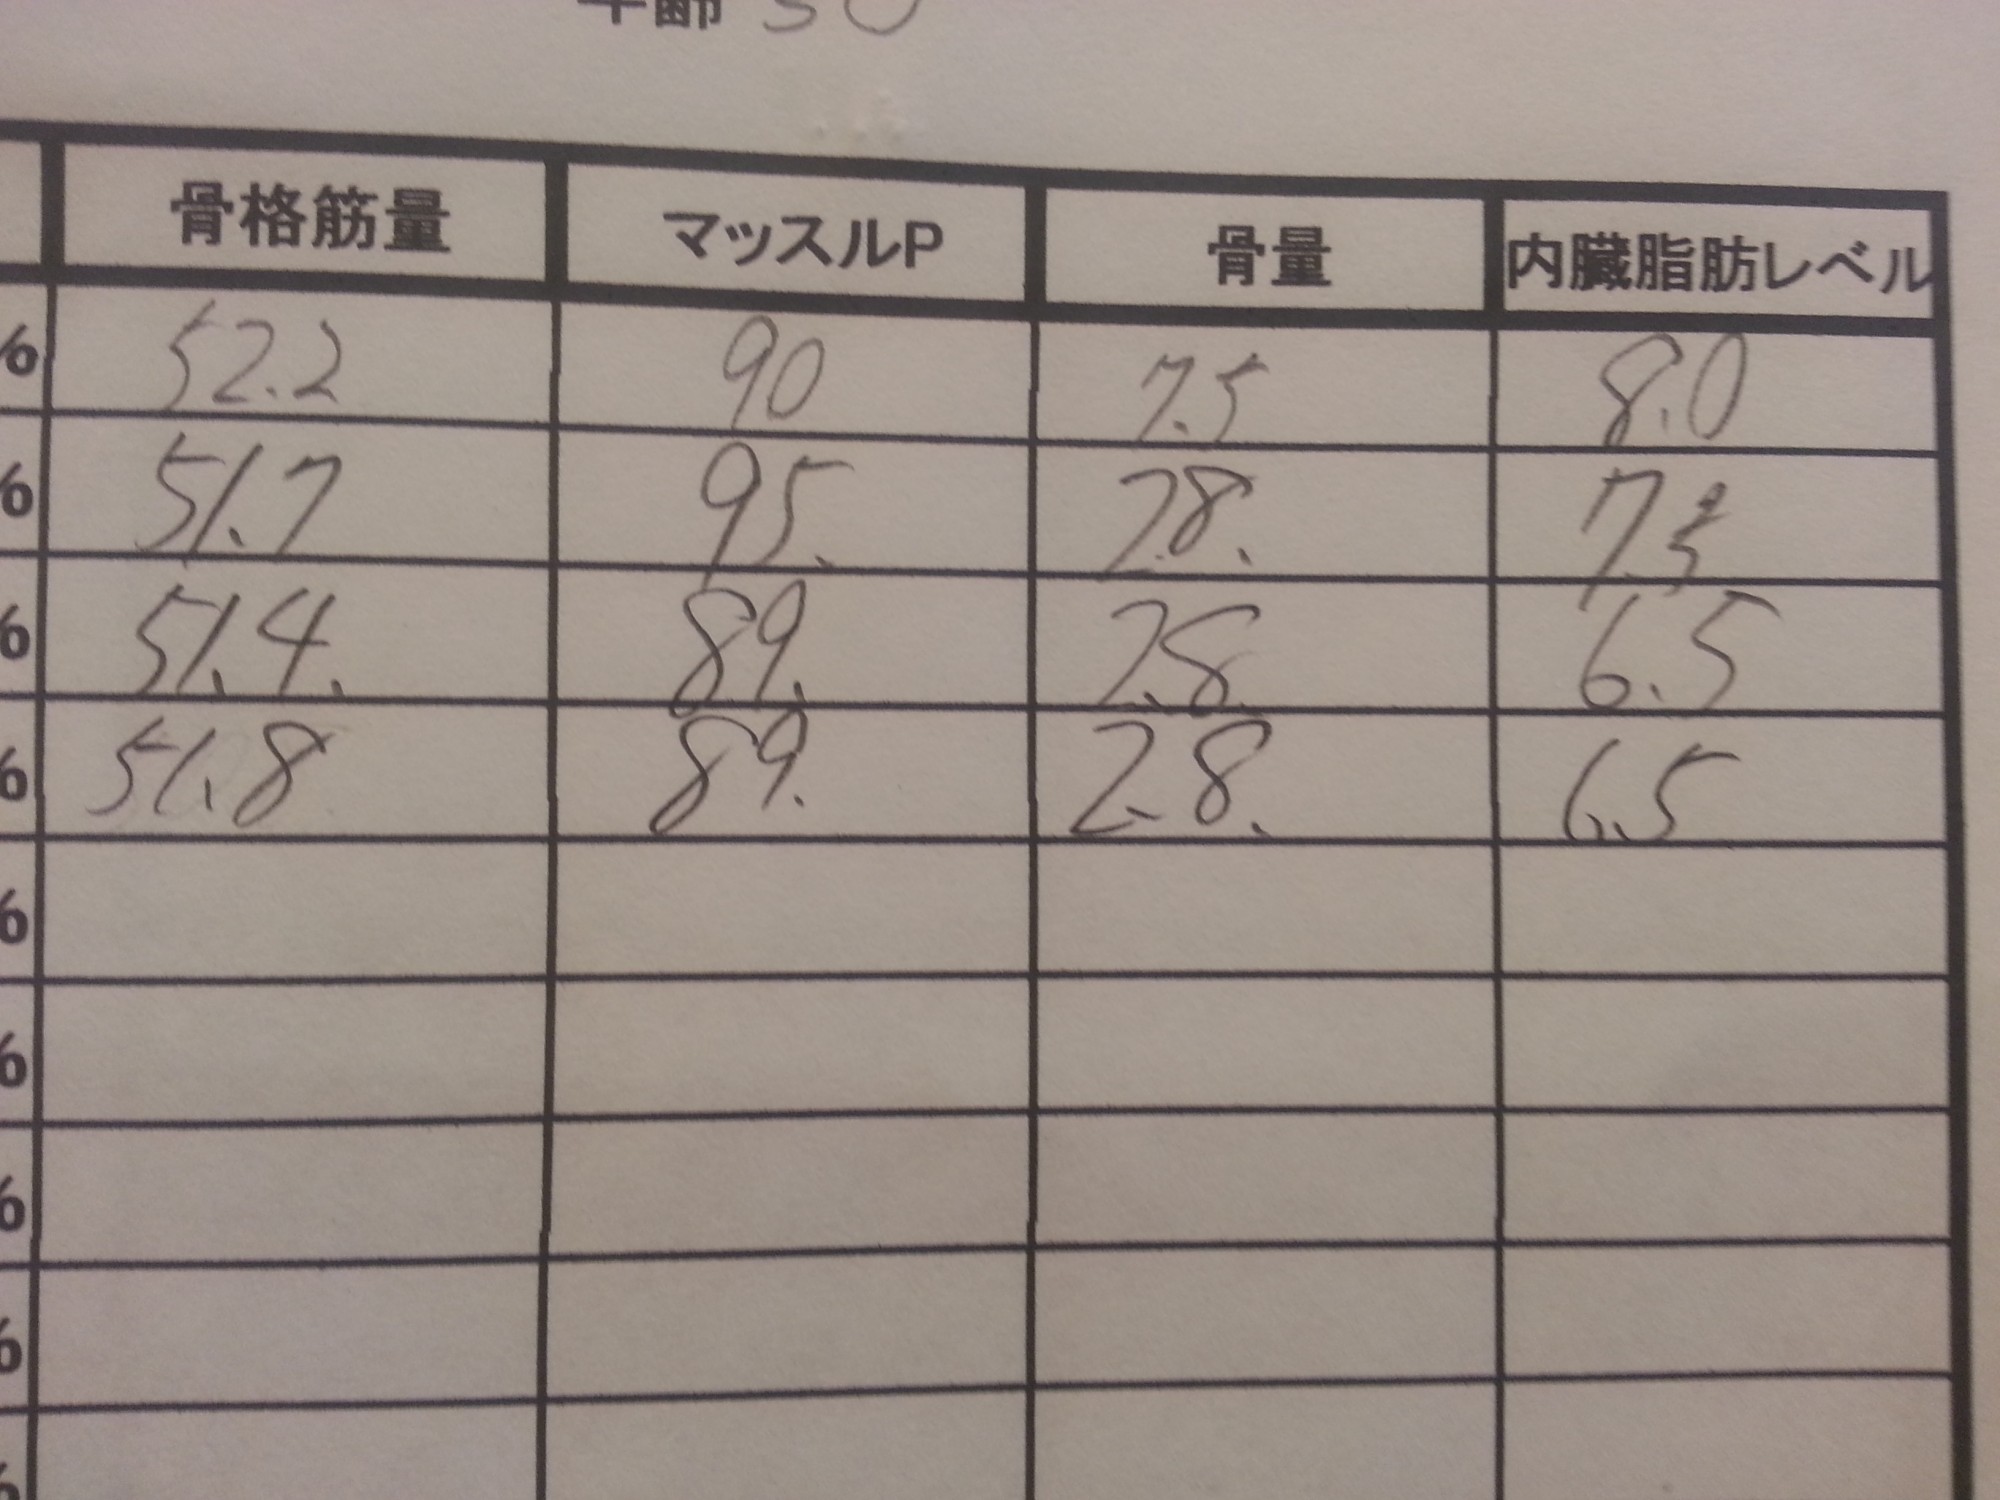 年齢 30
骨格筋量 マッスルP 骨量 内臓脂肪レベル
% 52.2 90 7.5 8.0
% 51.7 95. 2.8. 7.5
% 51.4. 89. 2.8. 6.5
% 51.8 89. 2.8. 6.5
%
%
%
%
%